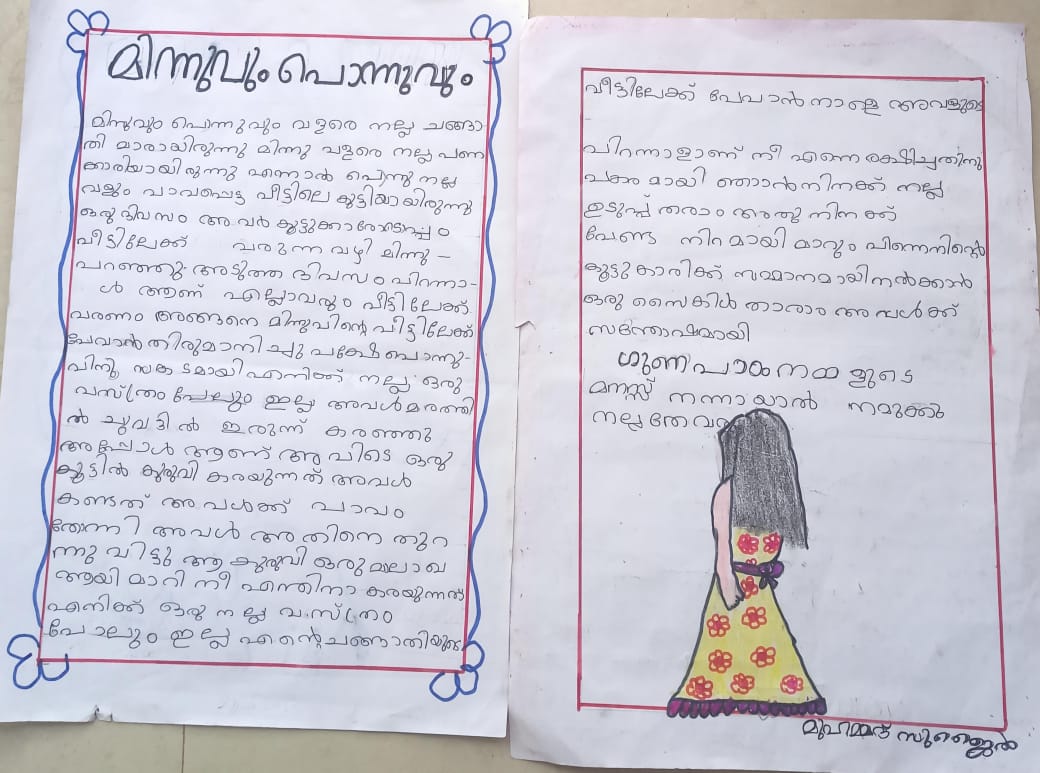 മിന്നുവും പൊന്നുവും
മിന്നുവും പൊന്നുവും വളരെ നല്ല ചങ്ങാ
തി മാരായിരുന്നു മിന്നു വളരെ നല്ല പണ
ക്കാരിയായിരുന്നു എന്നാൽ പൊന്നു നല്ല
വളും പാവപ്പെട്ട വീട്ടിലെ കുട്ടിയായിരുന്നു
ഒരു ദിവസം അവർ കൂട്ടുക്കാരോടൊപ്പം
വീട്ടിലേക്ക് വരുന്ന വഴി മിന്നു -
പറഞ്ഞു. അടുത്ത ദിവസം പിറന്നാ-
ൾ ആണ് എല്ലാവരും വീട്ടിലേക്ക്
വരണം അങ്ങനെ മിന്നുവിന്റെ വീട്ടിലേക്ക്
പേവാൻ തിരുമാനിച്ചു പക്ഷേ പൊന്നു-
വിനു സങ്കടമായി എനിക്ക് നല്ല ഒരു
വസ്ത്രം പേലും ഇല്ല അവൾ മരത്തി
ൽ ചുവട്ടിൽ ഇരുന്ന് കരഞ്ഞു
അപ്പോൾ ആണ് അവിടെ ഒരു
കൂട്ടിൽ കുരുവി കരയുന്നത് അവൾ
കണ്ടത് അവൾക്ക് പാവം
തോന്നി അവൾ അതിനെ തുറ
ന്നു വിട്ടു ആ കുരുവി ഒരു മാലാഖ
ആയി മാറി നീ എന്തിനാ കരയുന്നത്
എനിക്ക് ഒരു നല്ല വസ്ത്രം
പോലും ഇല്ല എന്റെ ചങ്ങാതിയുടെ
വീട്ടിലേക്ക് പേവാൻ നാളെ അവളുടെ
പിറന്നാളാണ് നീ എന്നെ രക്ഷിച്ചതിനു
പകരമായി ഞാൻ നിനക്ക് നല്ല
ഉടുപ്പ് തരാം അതു നിനക്ക്
വേണ്ട നിറമായി മാറും പിന്നെ നിന്റെ
കൂട്ടുകാരിക്ക് സമ്മാനമായി നൽക്കാൻ
ഒരു സൈകിൾ താരാം അവൾക്ക്
സന്തോഷമായി
ഗുണപാഠം നമ്മളുടെ
മനസ്സ് നന്നായാൽ നമുക്കു
നല്ലതേ വരൂ
മുഹമ്മദ് സുഹൈൽ